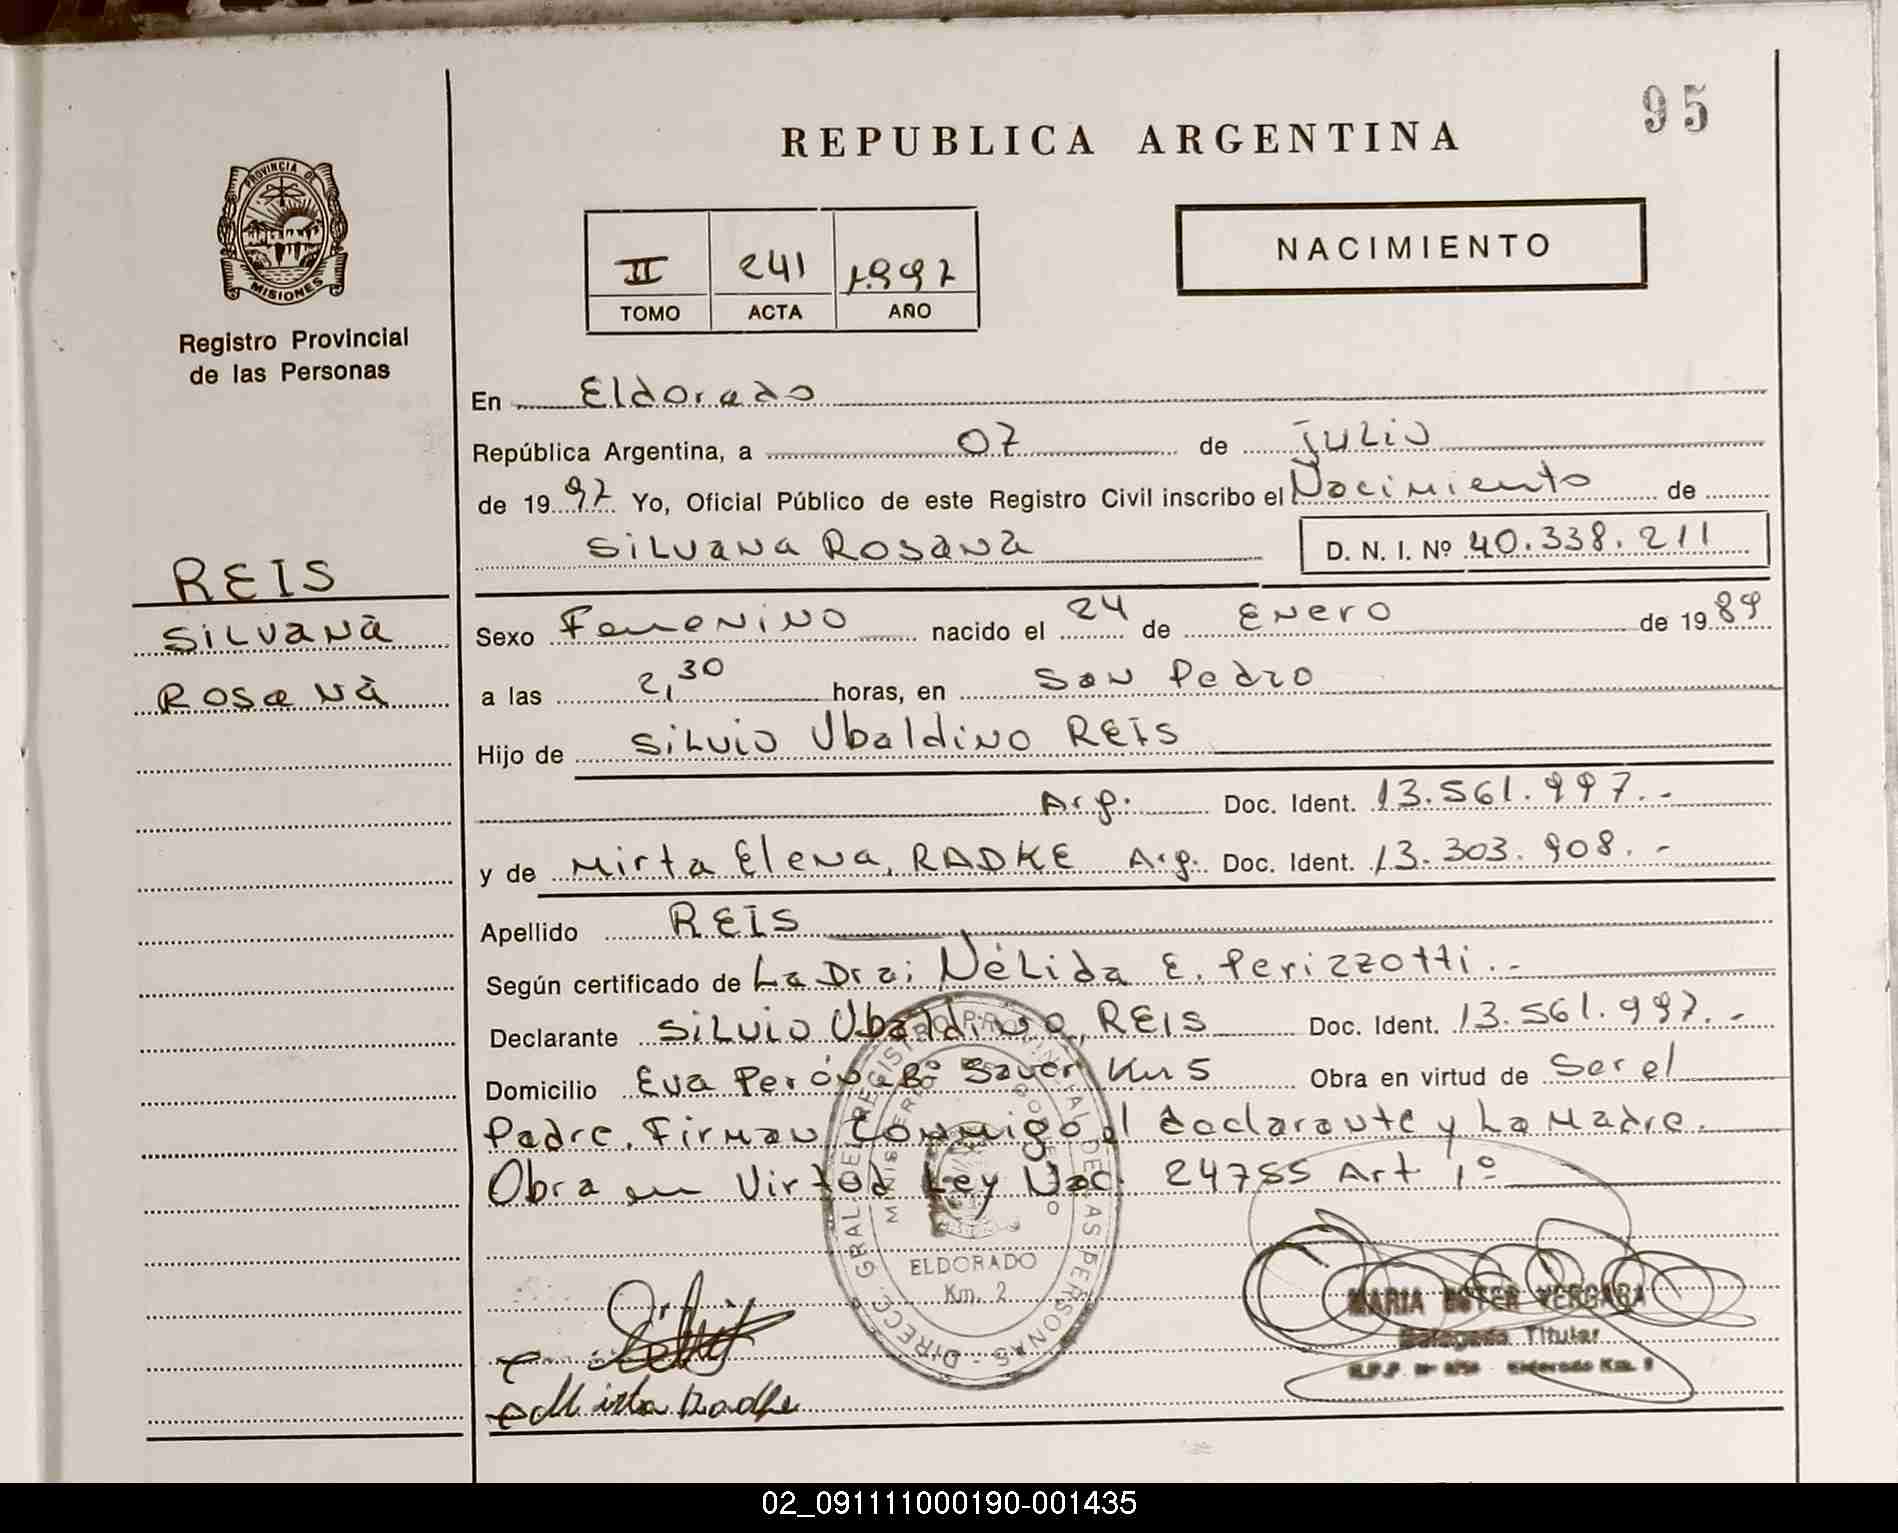 95
REPUBLICA ARGENTINA
PROVINCIA DE
MISIONES
Registro Provincial
de las Personas
II 241 1.997
TOMO ACTA AÑO
NACIMIENTO
En Eldorado
República Argentina, a 07 de Julio
de 19 97 Yo, Oficial Público de este Registro Civil inscribo el Nacimiento de
Silvana Rosana D. N. I. Nº 40.338.211
REIS
Silvana
Rosana
Sexo Femenino nacido el 24 de Enero de 19 89
a las 2,30 horas, en San Pedro
Hijo de Silvio Ubaldino REIS
Arg. Doc. Ident. 13.561.997.-
y de Mirta Elena, RADKE Arg. Doc. Ident. 13.303.908.-
Apellido REIS
Según certificado de La Dra; Nélida E. Perizzotti.-
Declarante Silvio Ubaldino, REIS Doc. Ident. 13.561.997.-
Domicilio Eva Perón Bº Sauer Km 5 Obra en virtud de Ser el
Padre. Firman conmigo el declarante y La Madre.
Obra en Virtud Ley Nac. 24755 Art 1º
DIRECC. GRAL DE REGISTRO PROVINCIAL DE LAS PERSONAS
MINISTERIO DE GOBIERNO
ELDORADO
Km. 2
MARIA ESTER VERGARA
Delegada Titular
R.P.P. Eldorado Km.
Mirta Radke
02_091111000190-001435